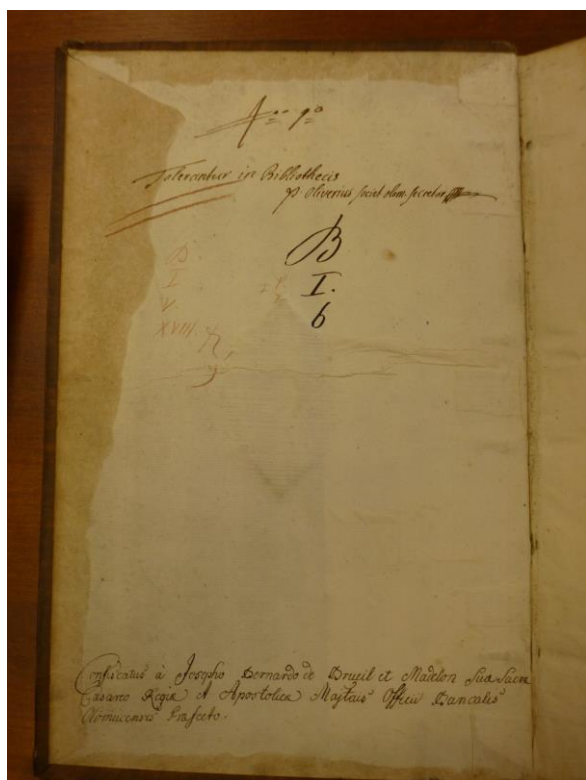 Tolerantur in Bibliothecis
P. Oliverius societ. olim. secretar.
B
I.
b
B.
I
V.
XVIII.
Confiscatus à Josepho Bernardo de Brueil et Madelon Suæ Sacræ
Cæsareo Regiæ et Apostolicæ Majtais Officii Bancalis
Olomucensis Præfecto.